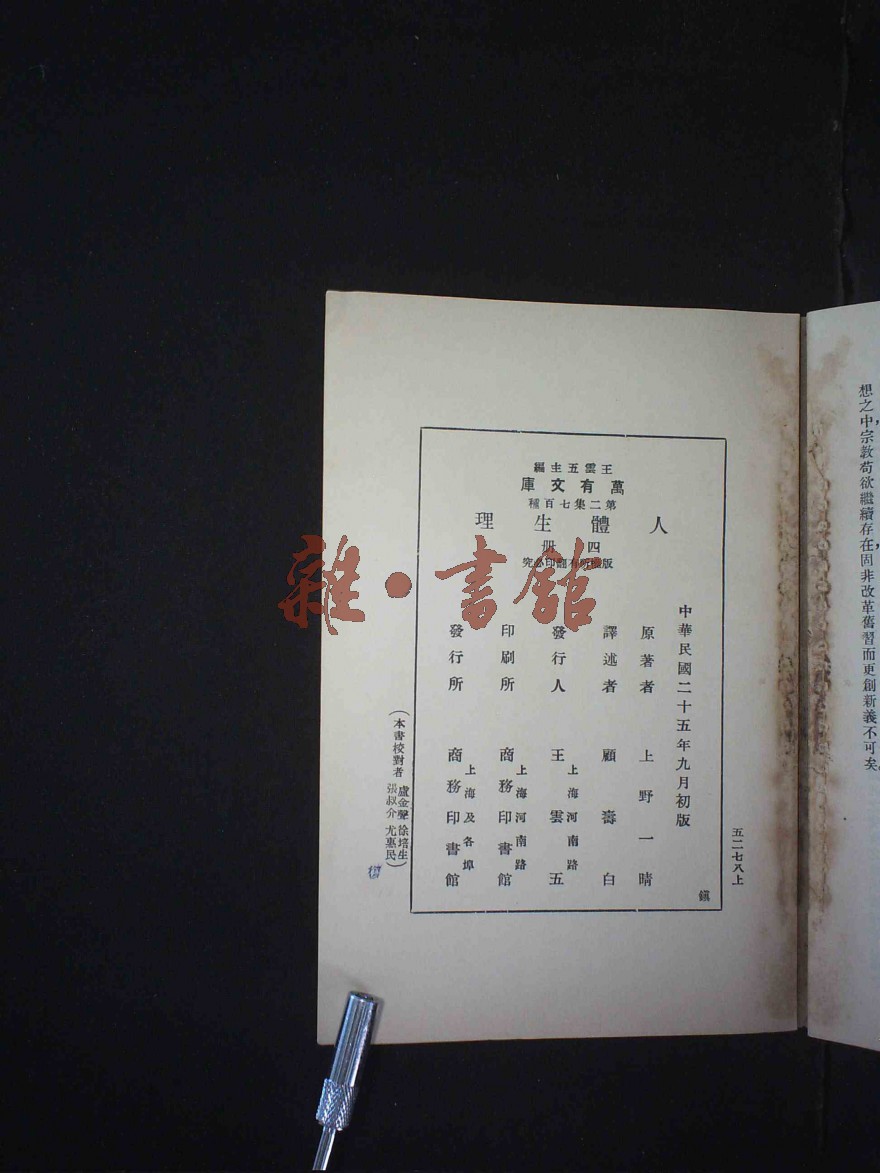 想之中，宗教苟欲繼續存在，固非改革舊習而更創新義不可矣。
王雲五主編
萬有文庫
第二集七百種
人體生理
四冊
版權所有翻印必究
中華民國二十五年九月初版
原著者 上野一晴
譯述者 顧壽白
發行人 王雲五
上海河南路
印刷所 商務印書館
上海河南路
發行所 商務印書館
上海及各埠
（本書校對者 盧金聲 徐培生
張叔介 尤惠民）
五二七八上
鎭
雜·書館